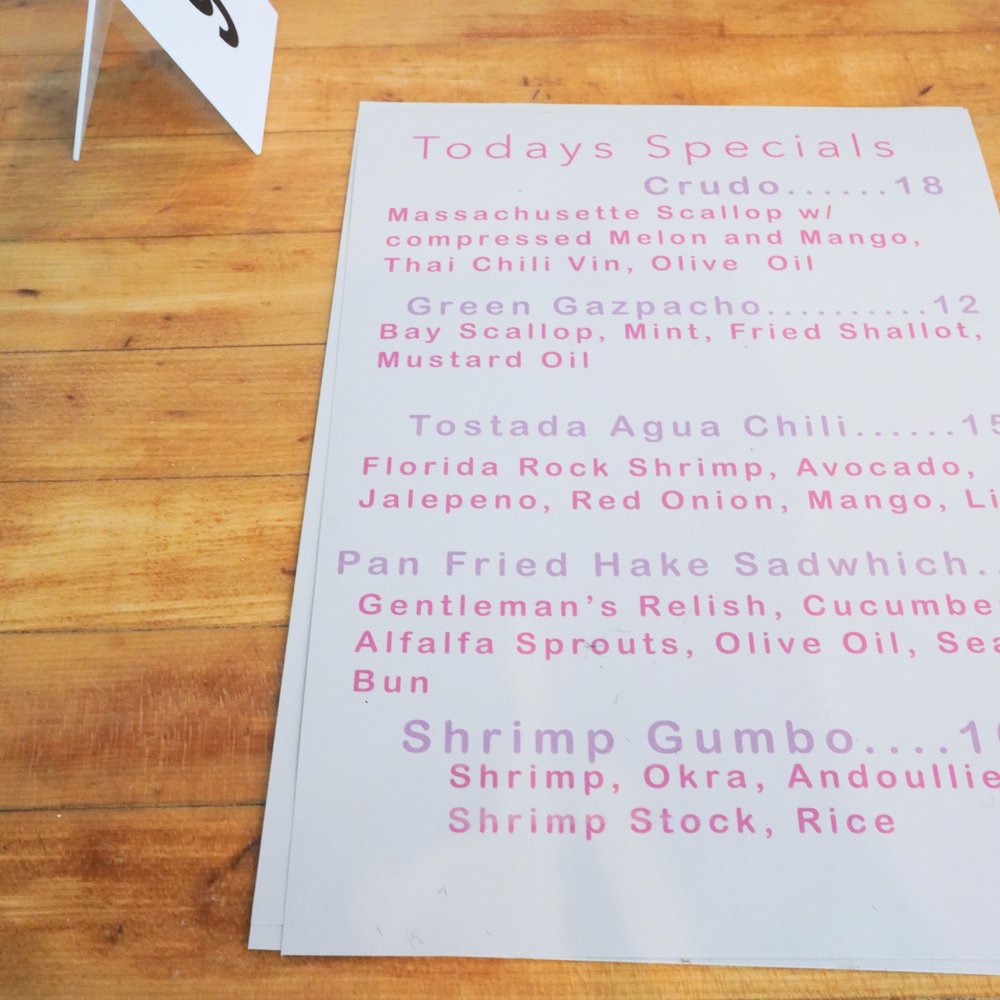 Todays Specials
Crudo......18
Massachusette Scallop w/
compressed Melon and Mango,
Thai Chili Vin, Olive Oil
Green Gazpacho..........12
Bay Scallop, Mint, Fried Shallot,
Mustard Oil
Tostada Agua Chili......15
Florida Rock Shrimp, Avocado,
Jalepeno, Red Onion, Mango,
Pan Fried Hake Sadwhich..
Gentleman's Relish,
Alfalfa Sprouts, Olive Oil,
Bun
Shrimp Gumbo....
Shrimp, Okra, Andoullie
Shrimp Stock, Rice